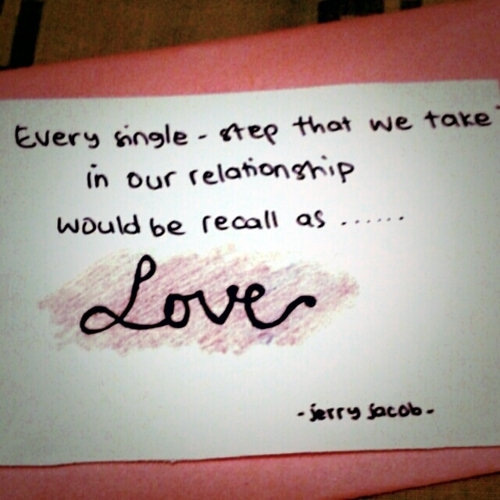 Every single - step that we take
in our relationship
would be recall as ......
Love
- jerry jacob -